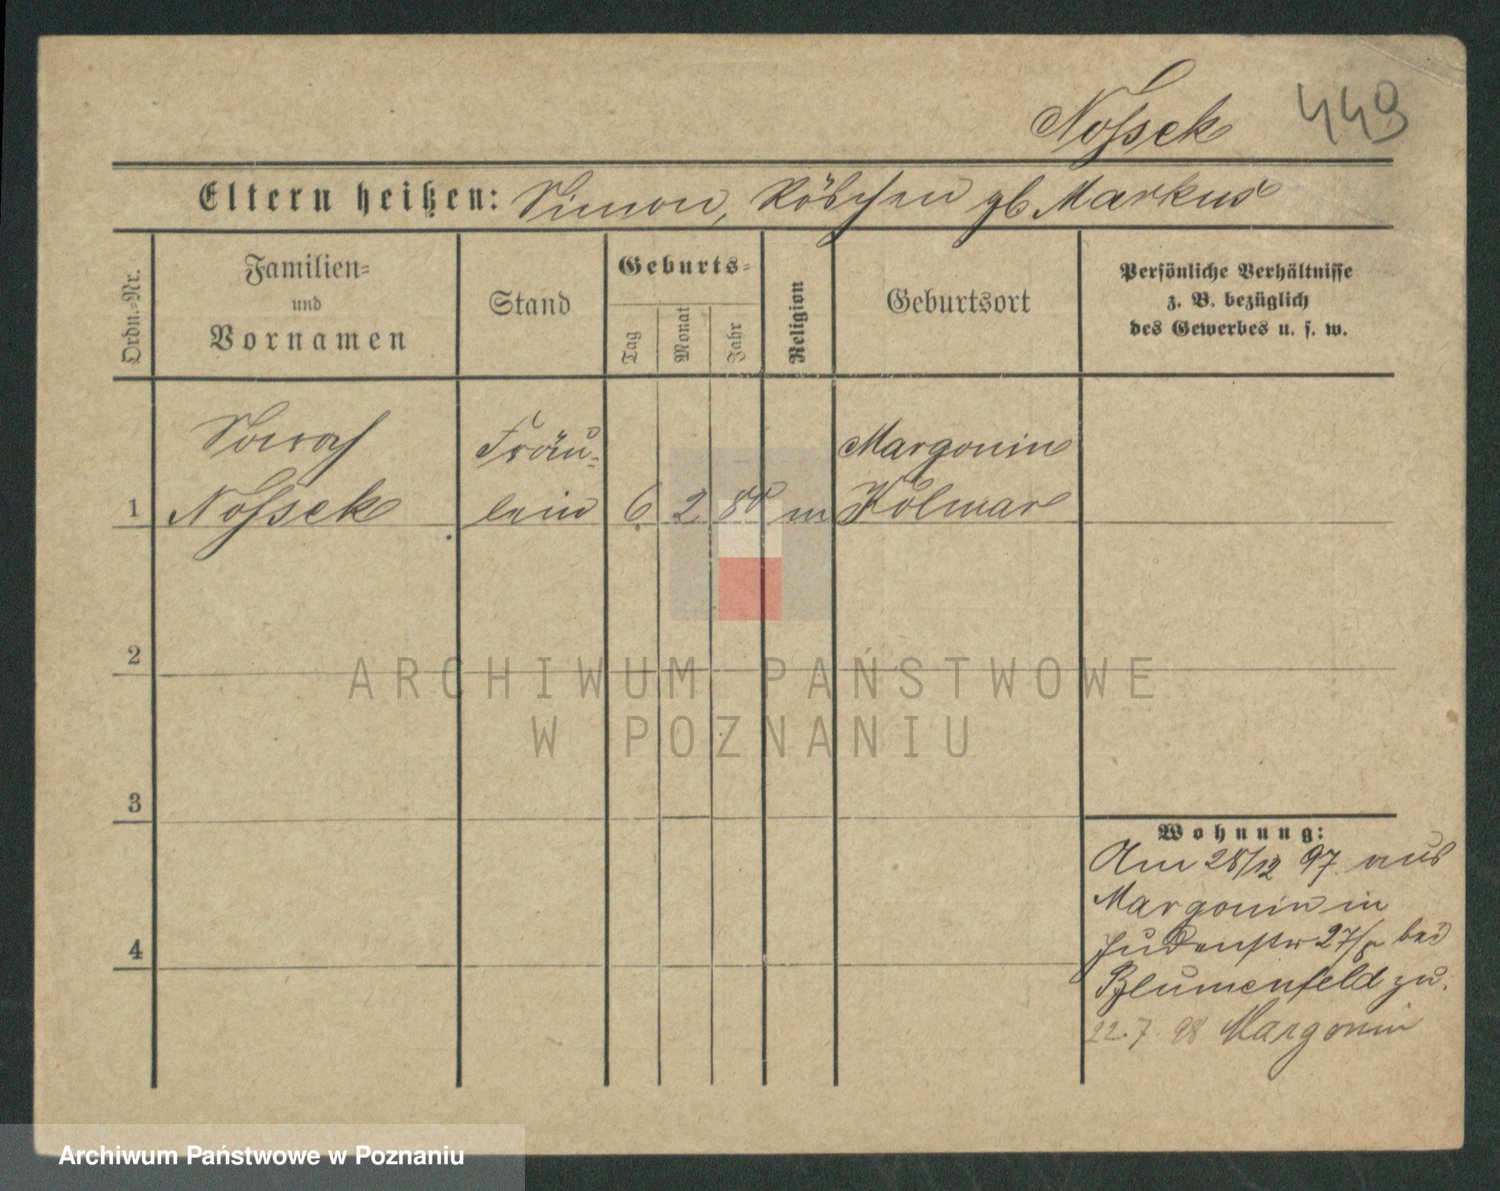 Nossek 443
Eltern heißen: Simon, Röschen gb Markus
Ordn.-Nr.
Familien-
und
Vornamen
Stand
Geburts-
Tag
Monat
Jahr
Religion
Geburtsort
Persönliche Verhältnisse
z. B. bezüglich
des Gewerbes u. s. w.
Sarah
Nossek
Fräu-
lein
6 2 80 m
Margonin
Kolmar
1
2
3
4
Wohnung:
Am 28/12 97 aus
Margonin in
Judenstr 27/ bei
Blumenfeld zu.
22.7.98 Margonin
ARCHIWUM PAŃSTWOWE
W POZNANIU
Archiwum Państwowe w Poznaniu